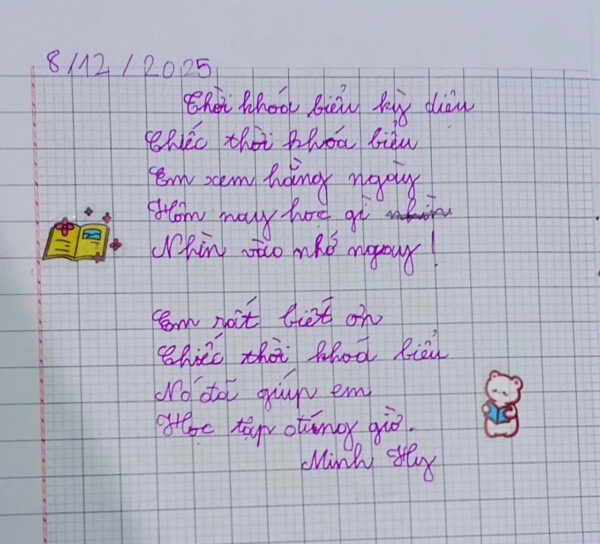 8/12/2025
Thời khoá biểu kỳ diệu
Chiếc thời khóa biểu
Em xem hằng ngày
Hôm nay học gì nhìn
Nhìn vào nhớ ngay!
Em rất biết ơn
Chiếc thời khoá biểu
Nó đã giúp em
Học tập đúng giờ.
Minh Hy